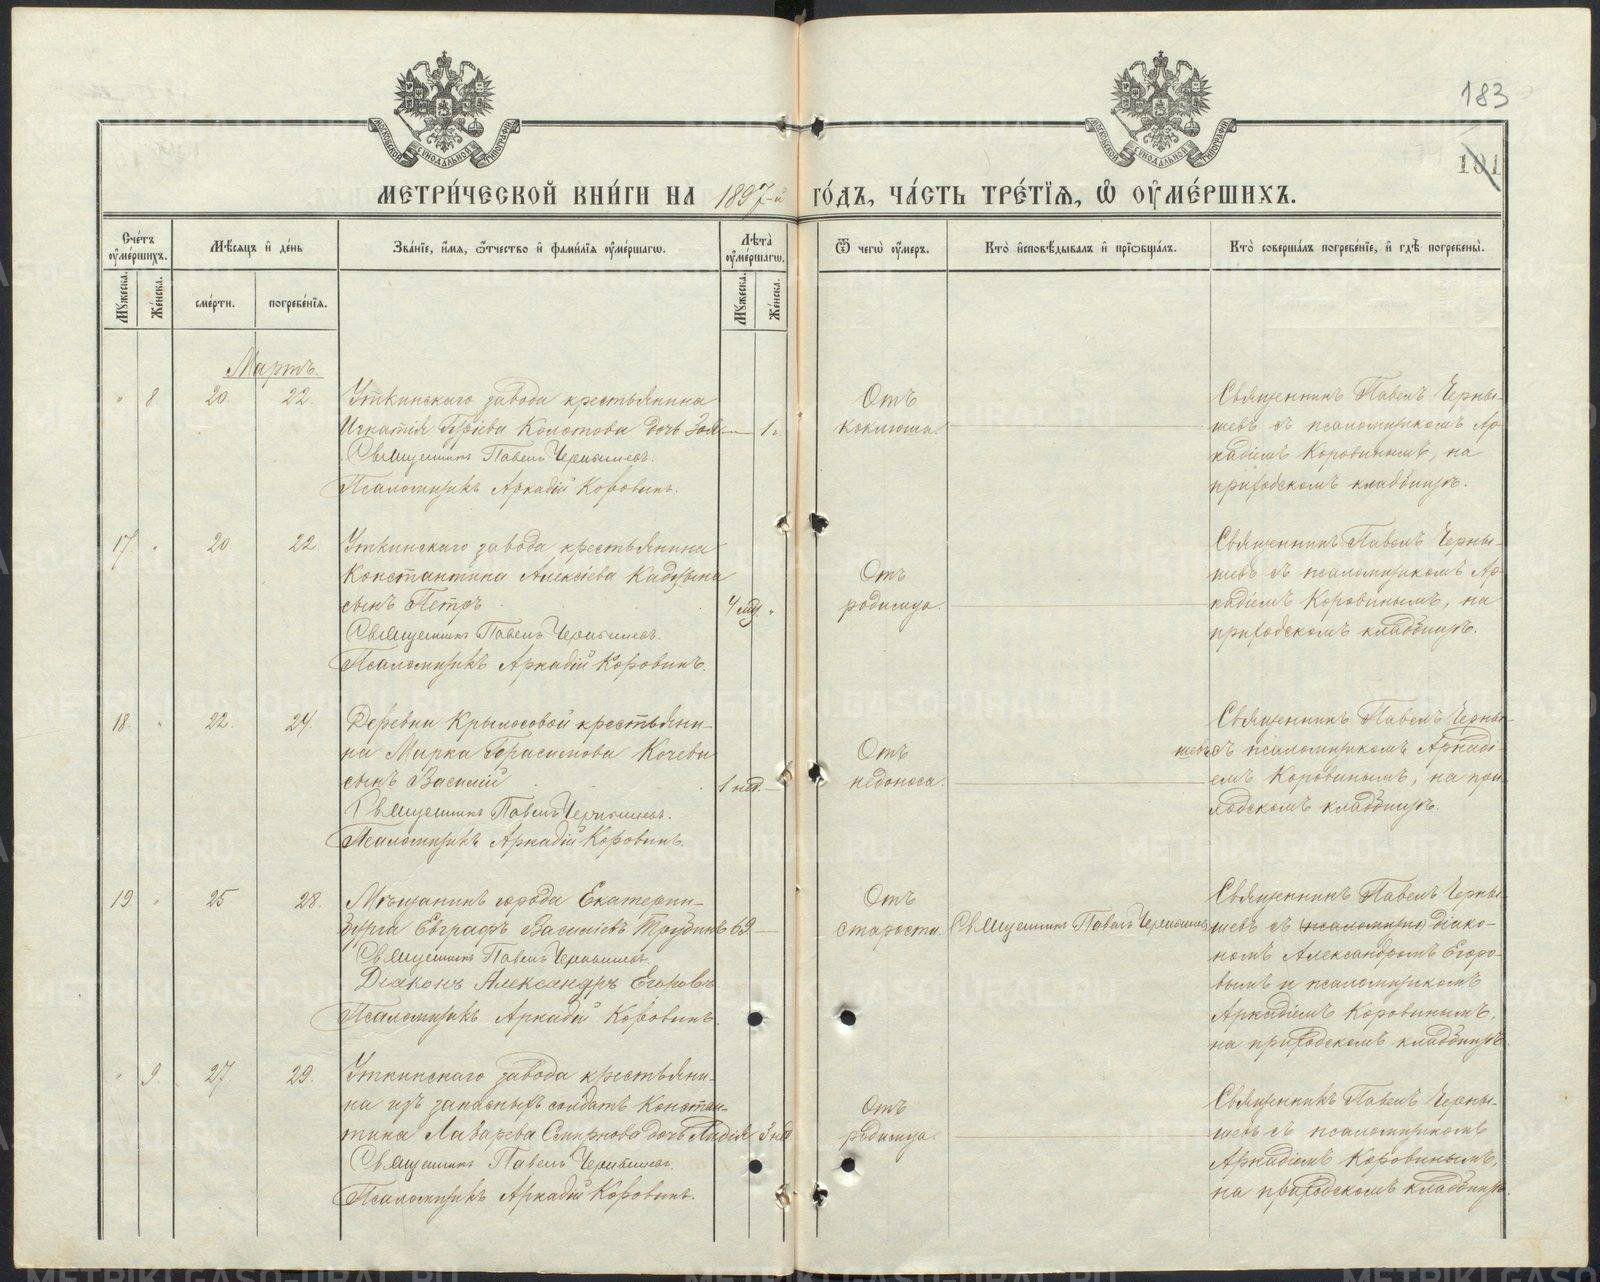 183
101
МОСКОВСКОЙ СѴНОДАЛЬНОЙ ТИПОГРАФІИ
МОСКОВСКОЙ СѴНОДАЛЬНОЙ ТИПОГРАФІИ
МЕТРИ́ЧЕСКОЙ КНИ́ГИ НА 1897-й ГО́ДЪ, ЧА́СТЬ ТРЕ́ТЇѦ, Ѡ҆ ОУ҆МЕ́РШИХЪ.
Сче́тъ оу҆ме́ршихъ.
Мѣ́сѧцъ и҆ де́нь
Зва́нїе, и҆́мѧ, ѻ҆́тчество и҆ фами́лїѧ оу҆ме́ршагѡ.
Лѣ̀та̀ оу҆ме́ршагѡ.
Ѿ чегѡ̀ оу҆́меръ.
Кто̀ и҆сповѣ́дывалъ и҆ прїѡбща́лъ.
Кто̀ соверша́лъ погребе́нїе, и҆ гдѣ̀ погребены̀.
Мꙋ́жеска.
Же́нска.
сме́рти.
погребе́нїѧ.
Мꙋ́жеска.
Же́нска.
Мартъ.
" 8 20. 22. Уткинскаго завода крестьянина
Игнатія Колотова дочь Зоя — 1 г.
Священникъ Павелъ Чернышевъ.
Псаломщикъ Аркадій Коровинъ.
Отъ
коклюша.
Священникъ Павелъ Черны-
шевъ съ псаломщикомъ Ар-
кадіемъ Коровинымъ, на
приходскомъ кладбищѣ.
17. " 20 22 Уткинскаго завода крестьянина
Константина Алексіева
сынъ Петръ 4 мѣс. "
Священникъ Павелъ Чернышевъ.
Псаломщикъ Аркадій Коровинъ.
Отъ
родимца.
Священникъ Павелъ Черны-
шевъ съ псаломщикомъ Ар-
кадіемъ Коровинымъ, на
приходскомъ кладбищѣ.
18. " 22. 24. Деревни Крылосовой крестьяни-
на Марка Герасимова Кочева
сынъ Василій 1 нед. —
Священникъ Павелъ Чернышевъ.
Псаломщикъ Аркадій Коровинъ.
Отъ
недоноса.
Священникъ Павелъ Черны-
шевъ съ псаломщикомъ Аркаді-
емъ Коровинымъ, на при-
ходскомъ кладбищѣ.
19 " 25 28. Мѣщанинъ города Екатерин-
бурга Евграфъ Василіевъ 69 —
Священникъ Павелъ Чернышевъ.
Діаконъ Александръ Егоровъ
Псаломщикъ Аркадій Коровинъ.
Отъ
старости.
Священникъ Павелъ Чернышевъ
Священникъ Павелъ Черны-
шевъ съ (псаломщико) діако-
номъ Александромъ Егоро-
вымъ и псаломщикомъ
Аркадіемъ Коровинымъ,
на приходскомъ кладбищѣ.
" 9. 27 29. Уткинскаго завода крестьяни-
на изъ запасныхъ солдатъ Констан-
тина Лазарева Смирнова дочь Лидія 3 нед.
Священникъ Павелъ Чернышевъ.
Псаломщикъ Аркадій Коровинъ.
Отъ
родимца.
Священникъ Павелъ Черны-
шевъ съ псаломщикомъ
Аркадіемъ Коровинымъ,
на приходскомъ кладбищѣ.